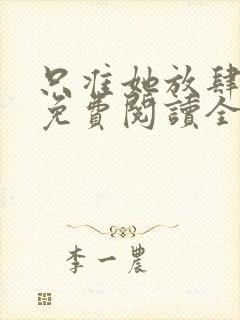 只准她放肆
免費閱讀全
李一農